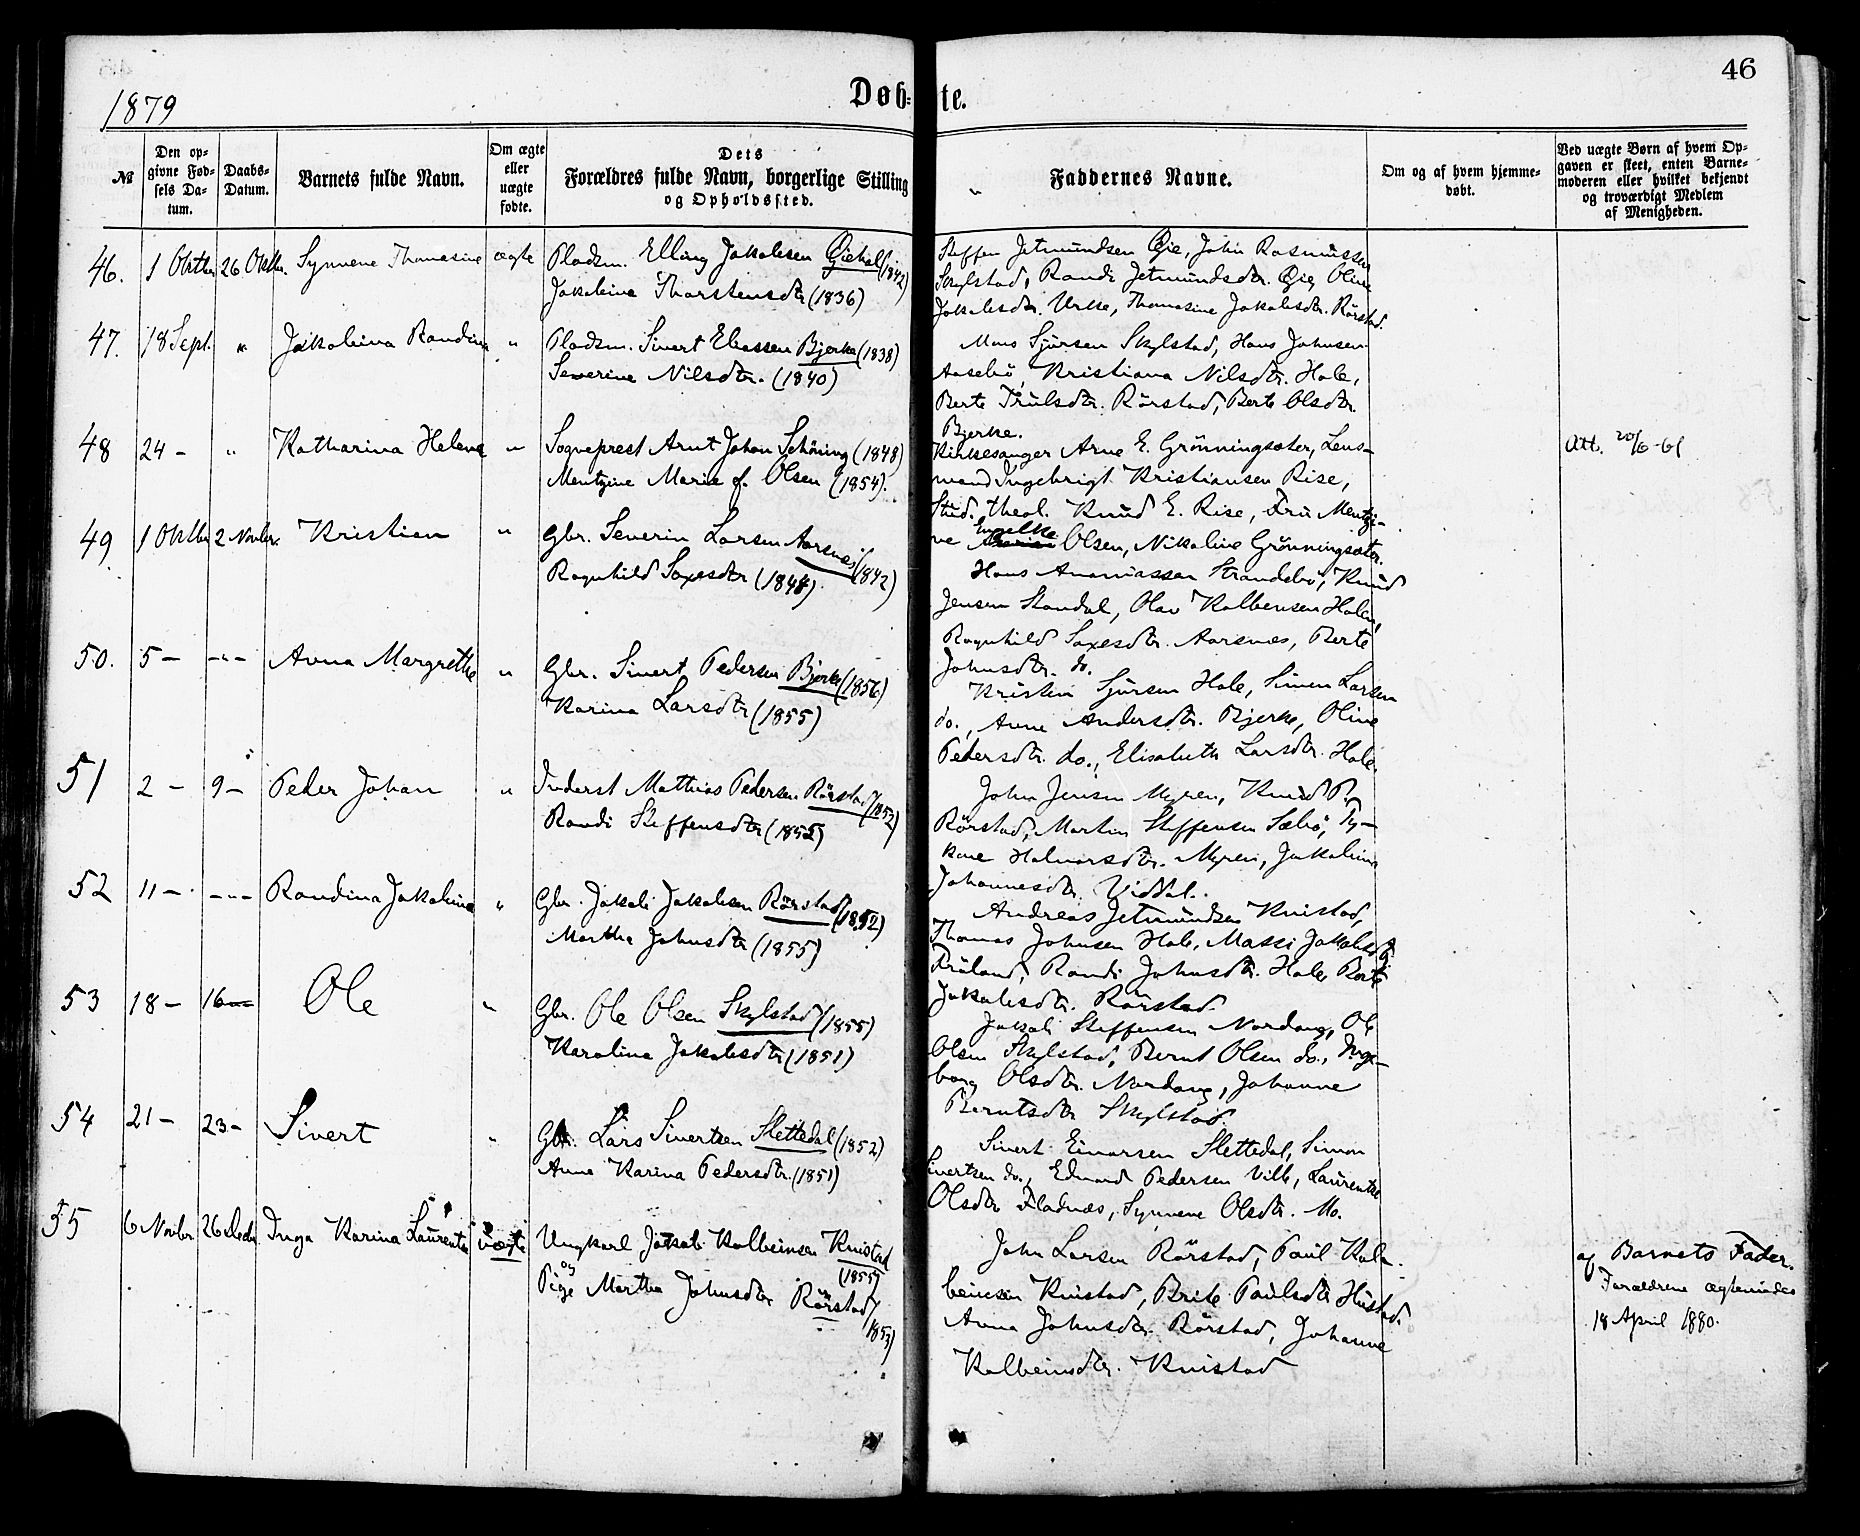 46
1879
Døb-te.
№
Den opgivne Fødsels Datum.
Daabs-Datum.
Barnets fulde Navn.
Om ægte eller uægte fødte.
Dets Forældres fulde Navn, borgerlige Stilling og Opholdssted.
Faddernes Navne.
Om og af hvem hjemmedøbt.
Ved uægte Børn af hvem Opgaven er skeet, enten Barnemoderen eller hvilket bekjendt og troværdigt Medlem af Menigheden.
46. 1 Oktbr 26 Oktbr. Synnene Thomasine ægte Pladsm. Elling Jakobsen Øiehal (1842)
Jakobine Thorstensdtr (1836)
Steffen Jetmundsen Øie, John Rasmussen
Skylstad, Randi Jetmundsdtr. Øie, Oline
Jakobsdtr. Urke, Thomasine Jakobsdtr. Rörstad.
47. 18 Sept. " Jakobina Randina " Pladsm. Sivert Eliassen Bjerke (1838)
Severine Nilsdtr. (1840)
Mons Sjursen Skylstad, Hans Johnsen
Aasebö, Kristiana Nilsdtr. Hole,
Berte Trulsdtr. Rörstad, Berte Olsdtr.
Bjerke.
48 24 - " Katharina Helene " Sogneprest Arnt Johan Schöning (1848)
Mentzine Marie f. Olsen (1854).
Kirkesanger Arne E. Grönningsæter, Lens-
mand Ingebrigt Kristiansen Rise,
Stud. theol. Knud E. Rise, Fru Mentzi-
ne Engelke Olsen, Nikoline Grönningsæter.
Att. 20/6-61
49 1 Oktbr 2 Novbr. Kristian " Gbr. Severin Larsen Aarsnes (1842)
Ragnhild Saxesdtr (1844)
Hans Ananiassen Strandebö, Knud
Jensen Standal, Olav Kolbensen Hole,
Ragnhild Saxesdtr. Aarsnæs, Berte
Johnsdtr. do.
50. 5 - -"- Anna Margrethe " Gbr. Sivert Pedersen Bjerke (1856)
Karina Larsdtr (1855)
Kristen Sjursen Hole, Simen Larsen
do., Anne Andersdtr. Bjerke, Oline
Pedersdtr. do., Elisabeth Larsdtr. Hole.
51 2 - 9 - Peder Johan " Inderst Mathias Pedersen Rörstad (1852)
Randi Steffensdtr (1855)
John Jensen Myren, Knud P.
Rörstad, Martin Steffensen Sæbö, Ty-
kane Halvorsdtr. Myren, Jakobine
Johannesdtr. Viddal.
52 11 - -"- Randina Jakobine " Gbr. Jakob Jakobsen Rörstad (1852)
Martha Johnsdtr (1855)
Andreas Jetmundsen Knistad,
Thomas Johnsen Hole, Massi Jakobsdtr
Fröland, Randi Johnsdtr. Hole, Berte
Jakobsdtr. Rörstad.
53 18 - 16 - Ole " Gbr. Ole Olsen Skylstad (1855)
Karolina Jakobsdtr (1851)
Jakob Steffensen Nordang, Ole
Olsen Skylstad, Bernt Olsen do., Inge-
borg Olsdtr. Nordang, Johanne
Berntsdtr Skylstad.
54 21 - 23 - Sivert " Gbr. Lars Sivertsen Slettedal (1852)
Anne Karina Pedersdtr. (1851)
Sivert Einarsen Slettedal, Simon
Sivertsen do., Edmund Pedersen Vilb, Laurentse
Olsdtr Fladnæs, Synnene Olsdtr. Mo.
55 6 Novbr 26 Decbr Inga Karina Laurentse uægte Ungkarl Jakob Kolbeinsen Knistad
(1855) og
Pige Martha Johnsdtr Rörstad (1853)
John Larsen Rörstad, Paul Kol-
beinsen Knistad, Brite Paulsdtr Hustad.
Anna Johnsdtr. Rörstad, Johanne
Kolbeinsdtr. Knistad
af Barnets Fader.
Forældrene ægteviedes
18 April 1880.